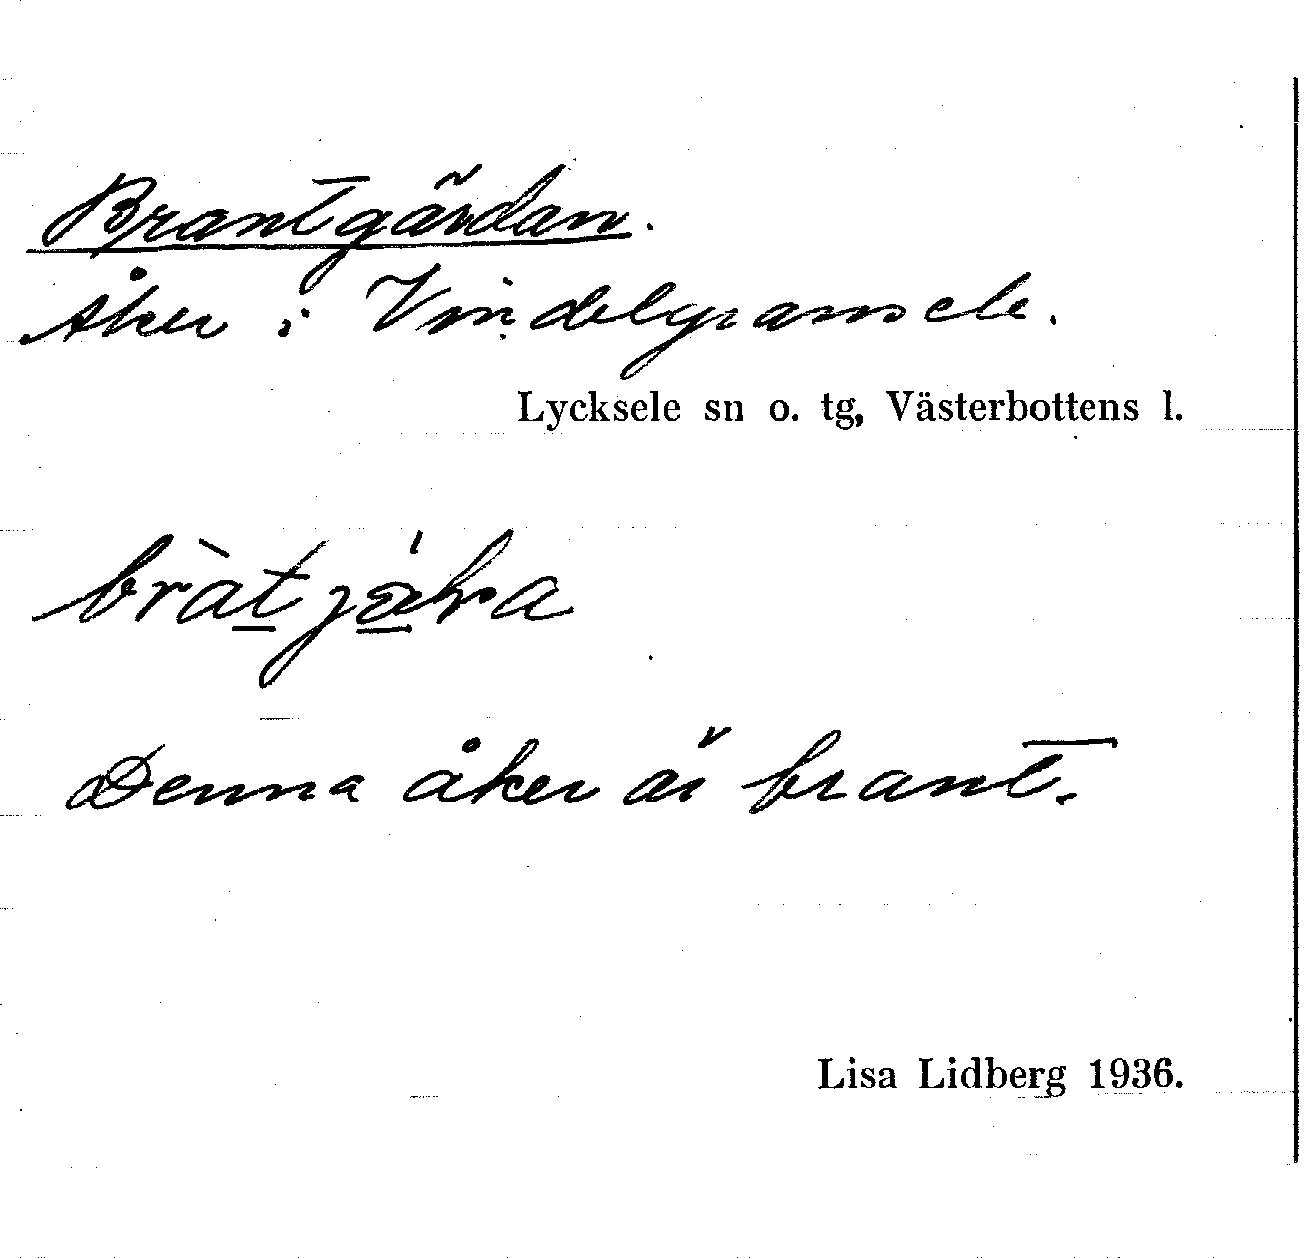 Brantgärdan.
Åker i Vindelgransele.
Lycksele sn o. tg, Västerbottens l.
Denna åker är brant.
Lisa Lidberg 1936.